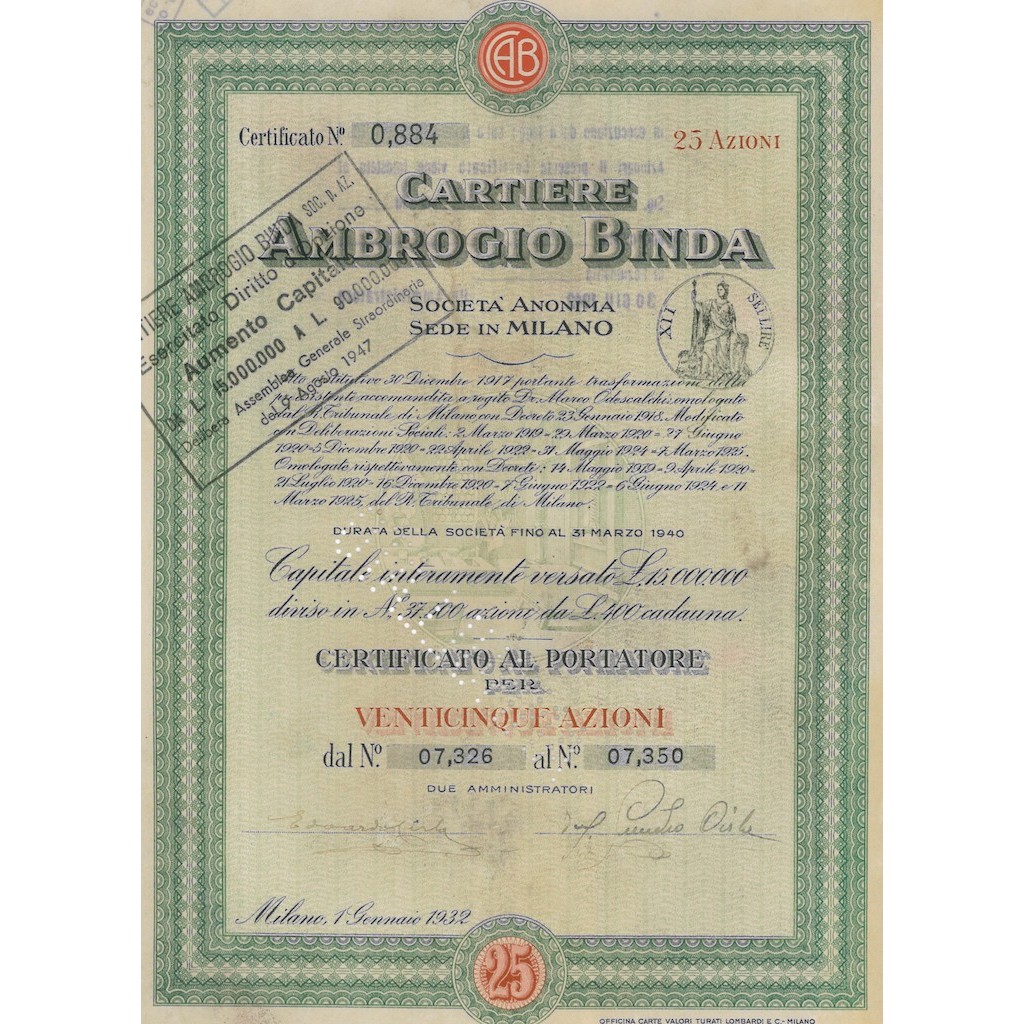 CAB
Certificato Nº 0,884
25 AZIONI
CARTIERE
AMBROGIO BINDA
SOCIETÀ ANONIMA
SEDE IN MILANO
XII SEI LIRE
TIERE AMBROGIO BINDA SOC. P. AZ.
Esercitato Diritto d'Opzione
Aumento Capitale
DA L. 15.000.000 A L. 90.000.000
Delibera Assemblea Generale Straordinaria
del 9 Agosto 1947
Atto costitutivo 30 Dicembre 1917 portante trasformazione della
accomandita a rogito Dr. Marco Odescalchi, omologato
dal R. Tribunale di Milano con Decreto 23 Gennaio 1918. Modificato
con Deliberazioni Sociali: 2 Marzo 1919=29 Marzo 1920=27 Giugno
1920=5 Dicembre 1920=22 Aprile 1922=31 Maggio 1924=7 Marzo 1925.
Omologate rispettivamente con Decreti: 14 Maggio 1919=9 Aprile 1920=
21 Luglio 1920=16 Dicembre 1920=7 Giugno 1922=6 Giugno 1924. e 11
Marzo 1925, del R. Tribunale di Milano.
DURATA DELLA SOCIETÀ FINO AL 31 MARZO 1940
Capitale interamente versato £.15.000.000
diviso in Nº. 37.500 azioni da £.400 cadauna.
CERTIFICATO AL PORTATORE
PER
VENTICINQUE AZIONI
dal Nº. 07,326 al Nº. 07,350
DUE AMMINISTRATORI
Milano, 1 Gennaio 1932
25
OFFICINA CARTE VALORI TURATI LOMBARDI E C.- MILANO